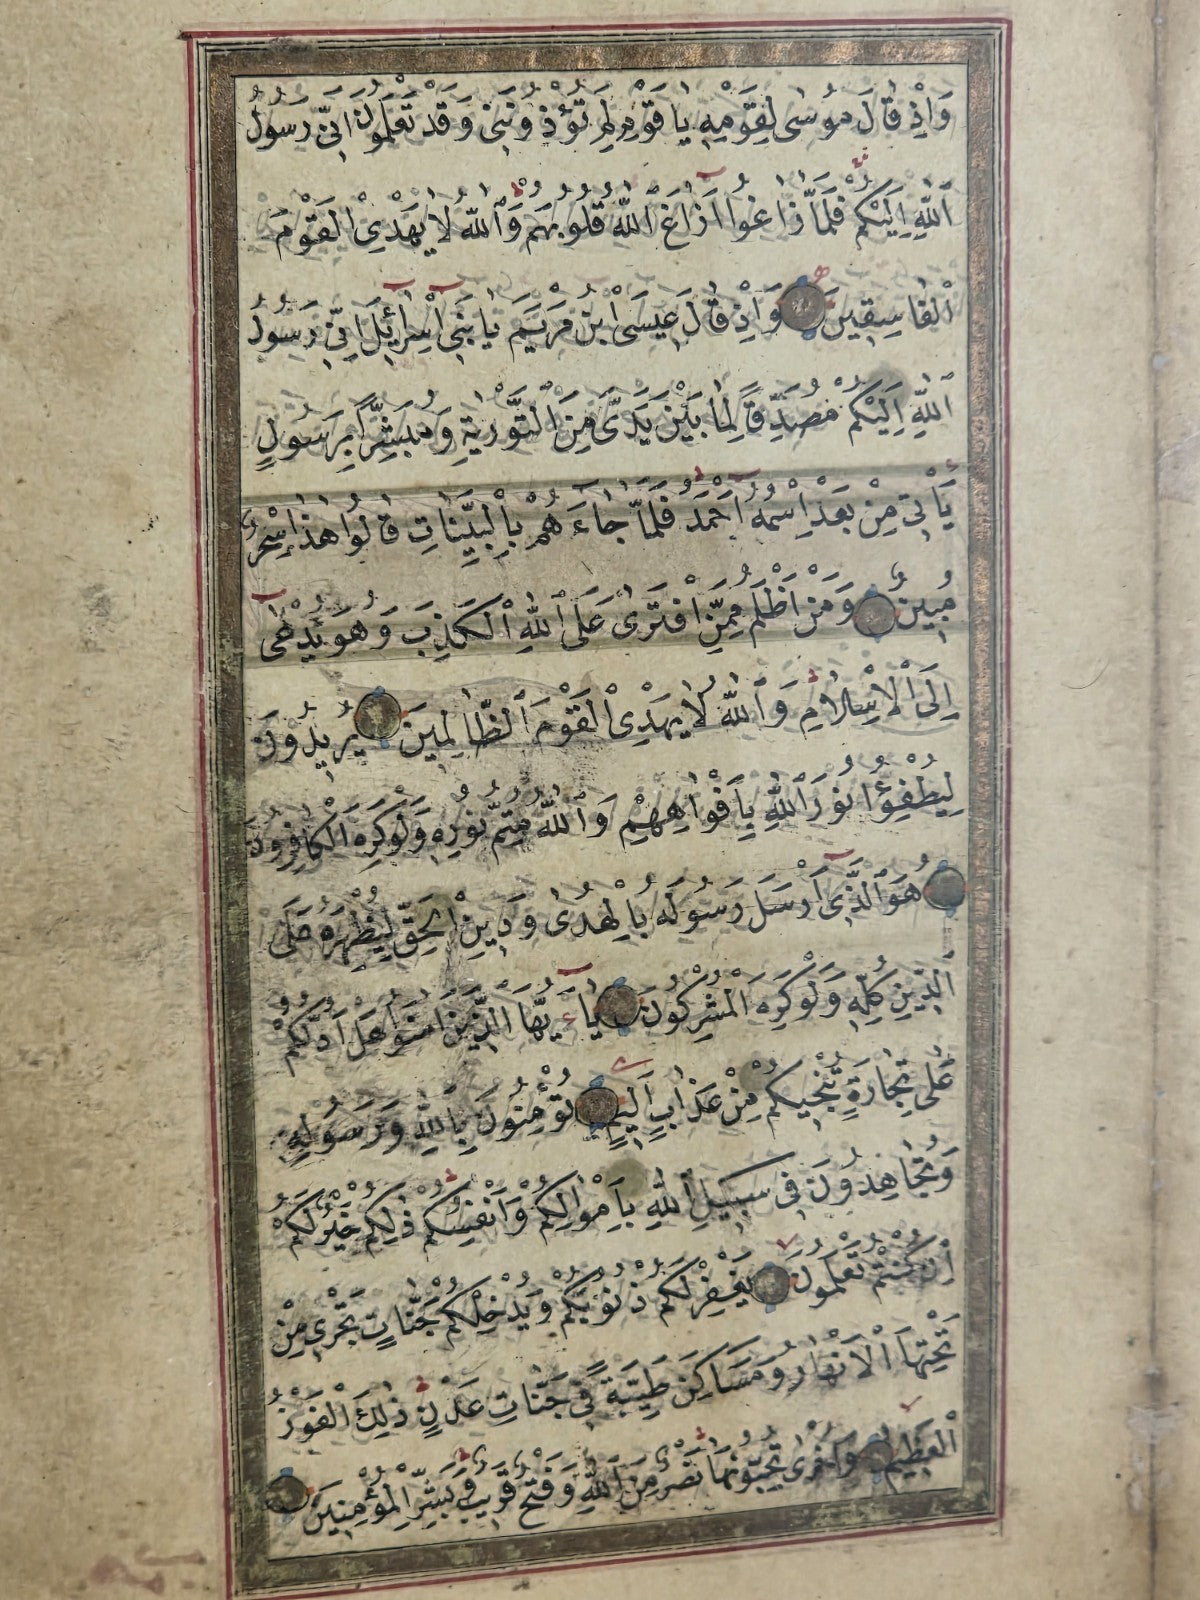 وَاِذْ قَالَ مُوسٰى لِقَوْمِهٖ يَا قَوْمِ لِمَ تُؤْذُونَنٖى وَقَدْ تَعْلَمُونَ اَنّٖى رَسُولُ
اللّٰهِ اِلَيْكُمْ فَلَمَّا زَاغُوا اَزَاغَ اللّٰهُ قُلُوبَهُمْ وَاللّٰهُ لَا يَهْدِى الْقَوْمَ
الْفَاسِقٖينَ وَاِذْ قَالَ عٖيسَى ابْنُ مَرْيَمَ يَا بَنٖى اِسْرَائٖلَ اِنّٖى رَسُولُ
اللّٰهِ اِلَيْكُمْ مُصَدِّقًا لِمَا بَيْنَ يَدَىَّ مِنَ التَّوْرٰيةِ وَمُبَشِّرًا بِرَسُولٍ
يَاْتٖى مِنْ بَعْدِى اسْمُهُ اَحْمَدُ فَلَمَّا جَاءَهُمْ بِالْبَيِّنَاتِ قَالُوا هٰذَا سِحْرٌ
مُبٖينٌ وَمَنْ اَظْلَمُ مِمَّنِ افْتَرٰى عَلَى اللّٰهِ الْكَذِبَ وَهُوَ يُدْعٰى
اِلَى الْاِسْلَامِ وَاللّٰهُ لَا يَهْدِى الْقَوْمَ الظَّالِمٖينَ يُرٖيدُونَ
لِيُطْفِؤُا نُورَ اللّٰهِ بِاَفْوَاهِهِمْ وَاللّٰهُ مُتِمُّ نُورِهٖ وَلَوْ كَرِهَ الْكَافِرُونَ
هُوَ الَّذٖى اَرْسَلَ رَسُولَهُ بِالْهُدٰى وَدٖينِ الْحَقِّ لِيُظْهِرَهُ عَلَى
الدّٖينِ كُلِّهٖ وَلَوْ كَرِهَ الْمُشْرِكُونَ يَاءَيُّهَا الَّذٖينَ اٰمَنُوا هَلْ اَدُلُّكُمْ
عَلٰى تِجَارَةٍ تُنْجٖيكُمْ مِنْ عَذَابٍ اَلٖيمٍ تُؤْمِنُونَ بِاللّٰهِ وَرَسُولِهٖ
وَتُجَاهِدُونَ فٖى سَبٖيلِ اللّٰهِ بِاَمْوَالِكُمْ وَاَنْفُسِكُمْ ذٰلِكُمْ خَيْرٌ لَكُمْ
اِنْ كُنْتُمْ تَعْلَمُونَ يَغْفِرْ لَكُمْ ذُنُوبَكُمْ وَيُدْخِلْكُمْ جَنَّاتٍ تَجْرٖى مِنْ
تَحْتِهَا الْاَنْهَارُ وَمَسَاكِنَ طَيِّبَةً فٖى جَنَّاتِ عَدْنٍ ذٰلِكَ الْفَوْزُ
الْعَظٖيمُ وَاُخْرٰى تُحِبُّونَهَا نَصْرٌ مِنَ اللّٰهِ وَفَتْحٌ قَرٖيبٌ وَبَشِّرِ الْمُؤْمِنٖينَ